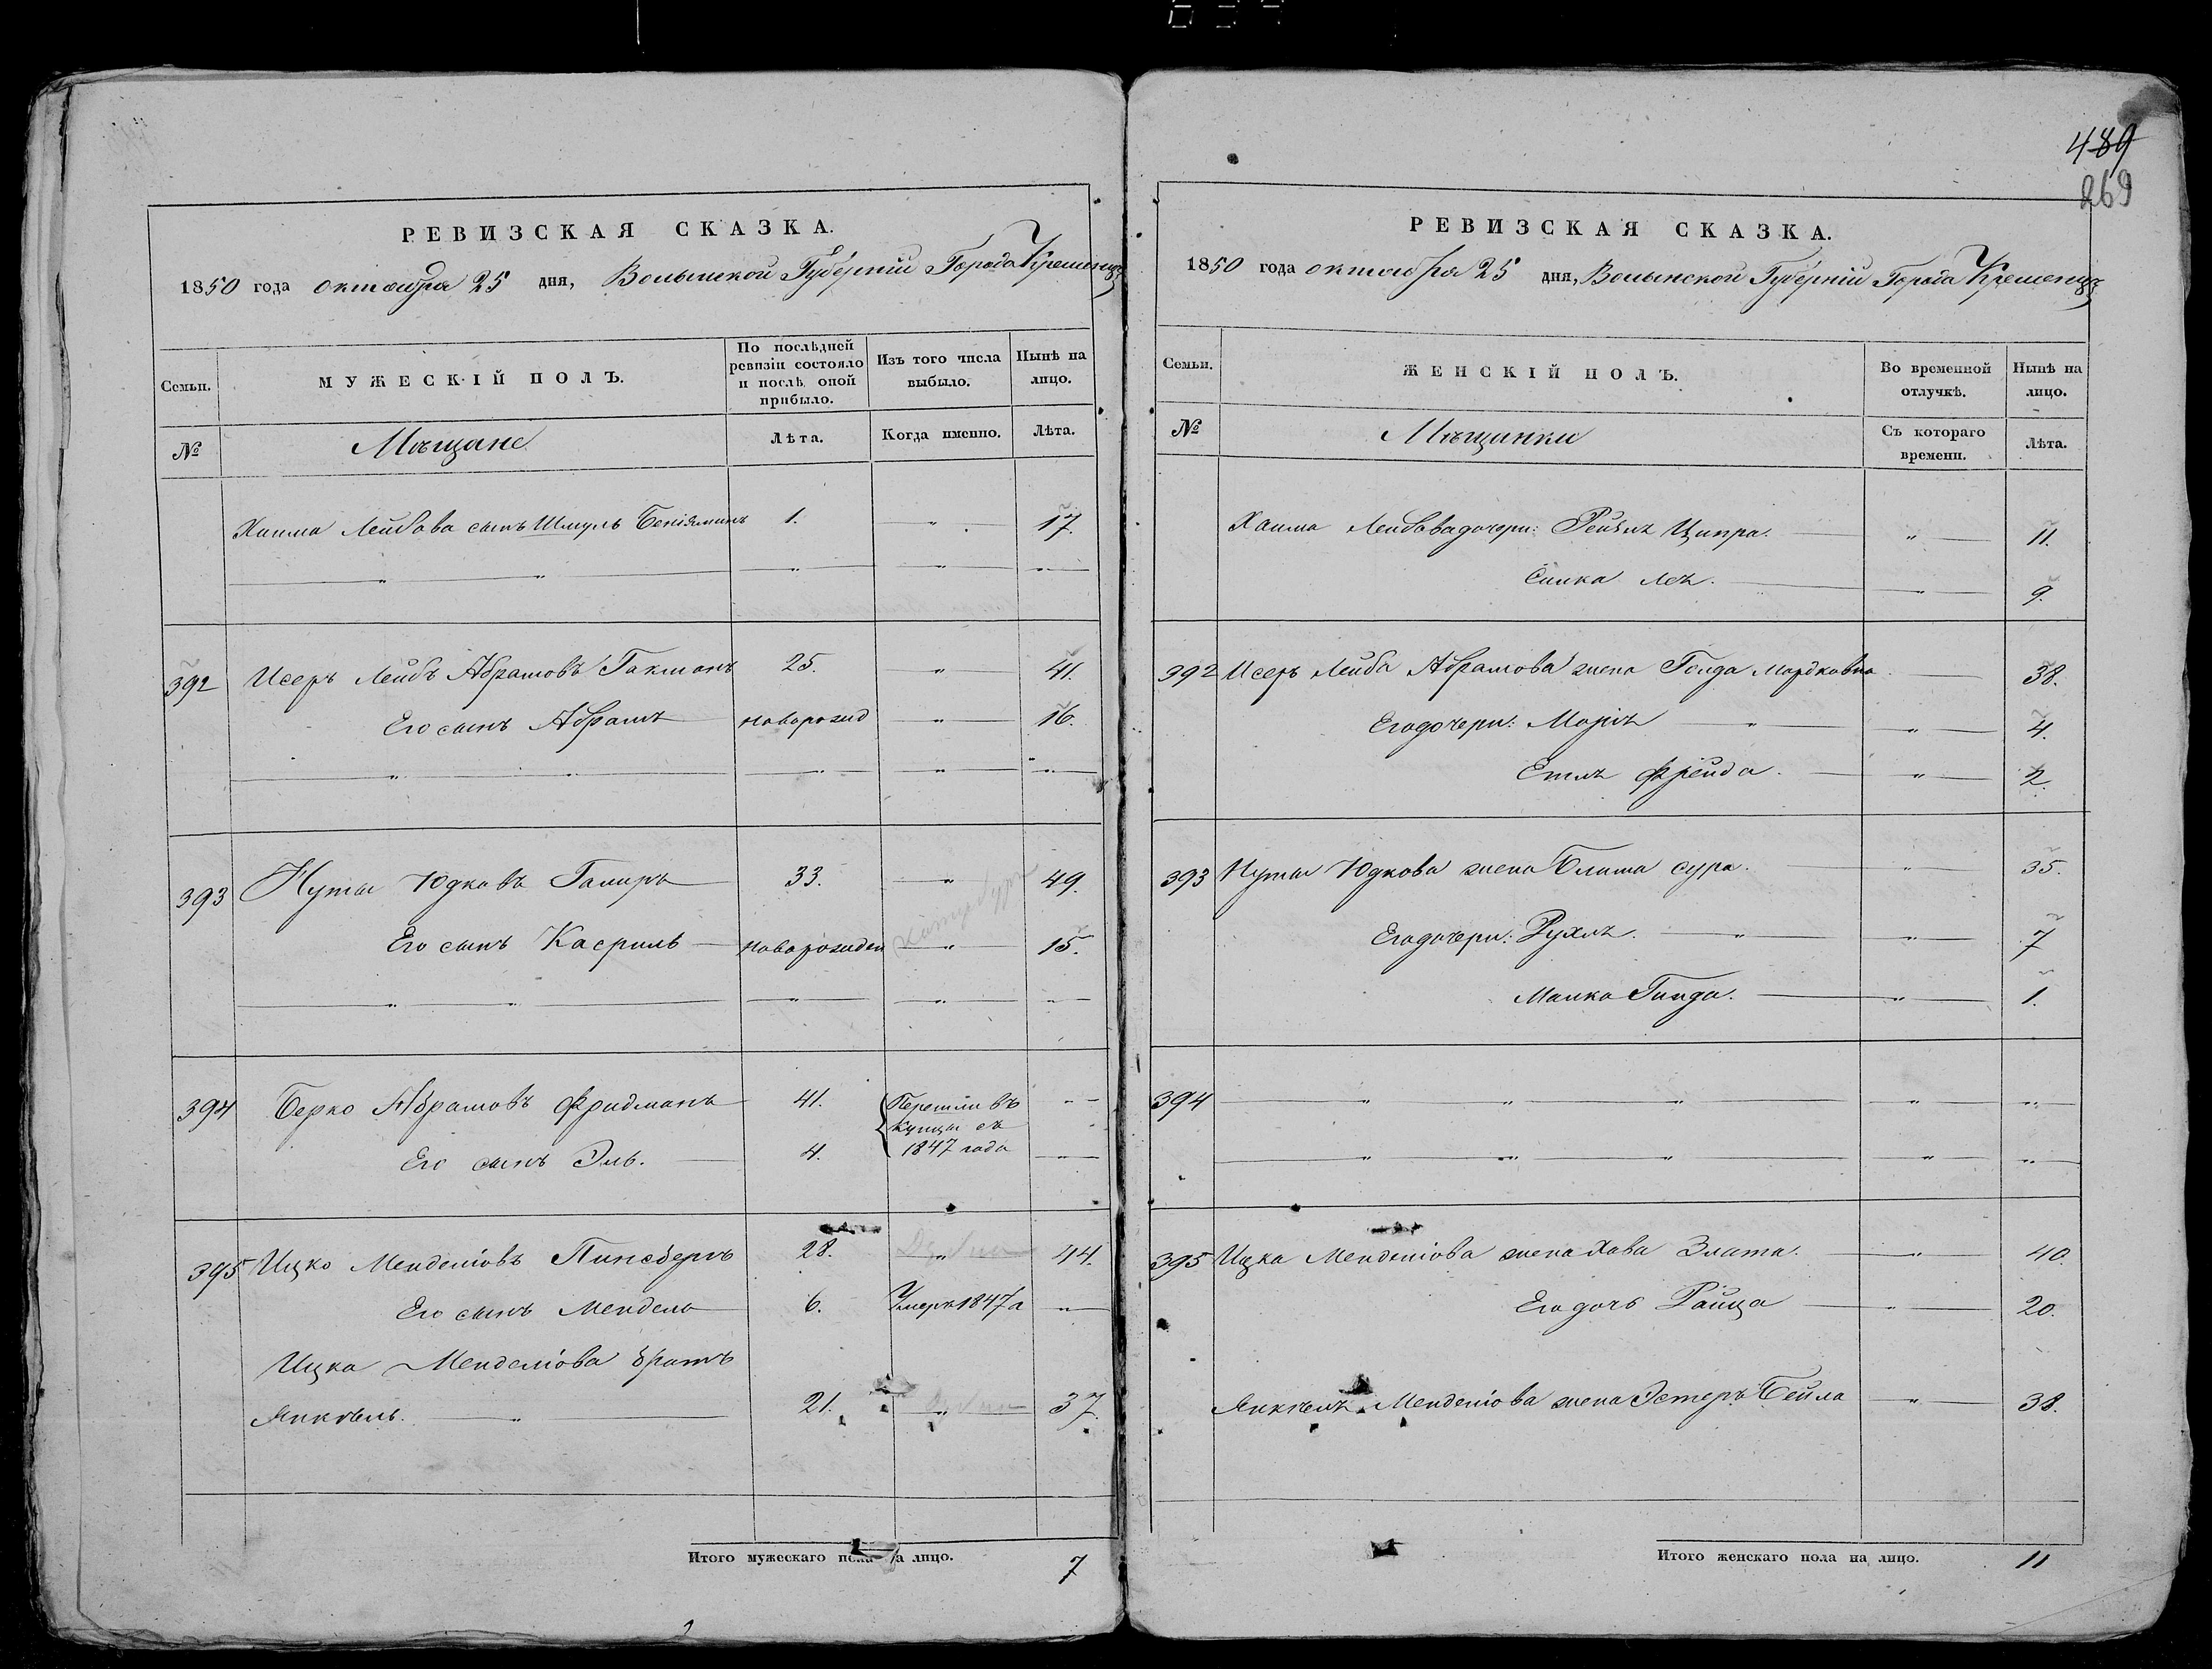 РЕВИЗСКАЯ СКАЗКА.
1850 года октября 25 дня, Волынской Губерніи Города Кременца
Семьи. МУЖЕСКІЙ ПОЛЪ. По послѣдней ревизіи состояло и послѣ оной прибыло. Изъ того числа выбыло. Нынѣ на лицо.
№ Мѣщане Лѣта. Когда именно. Лѣта.
Хаима Лейбова сынъ Шмуль Беніяминъ 1. " 17.
" " " " "
392 Исеръ Лейбъ Абрамовъ Гакманъ 25. " 41.
Его сынъ Абрамъ новорожд " 16.
" " " " "
393 Нута Юдковъ 33. " 49.
Его сынъ Касриль новорожден " 15.
" " " " "
394 Берко Абрамовъ Фридманъ 41. Перешли въ купцы съ 1847 года "
Его сынъ Эль. 4. "
395 Ицко Менделіовъ Пинсбергъ 28. " 44.
Его сынъ Мендель 6. Умеръ 1847 г "
Ицка Менделіова братъ
Янкѣль. " 21. " 37.
Итого мужескаго пола на лицо. 7
489
269
РЕВИЗСКАЯ СКАЗКА.
1850 года октября 25 дня, Волынской Губерніи Города Кременца
Семьи. ЖЕНСКІЙ ПОЛЪ. Во временной отлучкѣ. Нынѣ на лицо.
№ Мѣщанки Съ котораго времени. Лѣта.
Хаима Лейбова дочери: Рейзя Ципра. " 11.
Симка Лея. " 9.
392 Исеръ Лейба Абрамова жена Голда Мордковна 38.
Его дочери: Марія " " 4.
Етля Фрейда. " 2.
393 Нуты Юдкова жена Блима Сура. " 35.
Его дочери: Рухля. " " 7
Малка Гинда. " 1.
394 " " " " "
" " " " "
395 Ицка Менделіова жена Хава Злата. " 40.
Его дочь Райца " 20.
Янкѣля Менделіова жена Эстеръ Бейла " 38.
Итого женскаго пола на лицо. 11